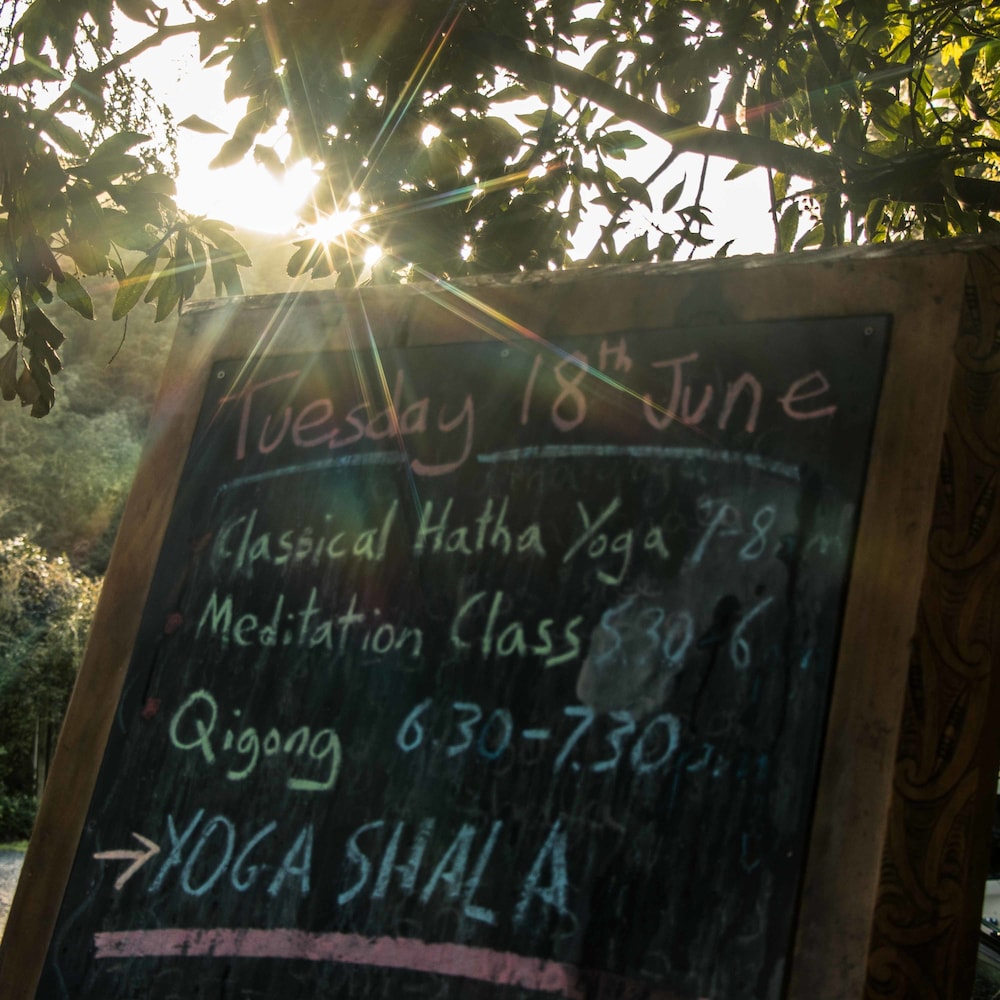 Tuesday 18th June
Classical Hatha Yoga 7-8am
Meditation Class 5.30-6
Qigong 6.30-7.30pm
→YOGA SHALA